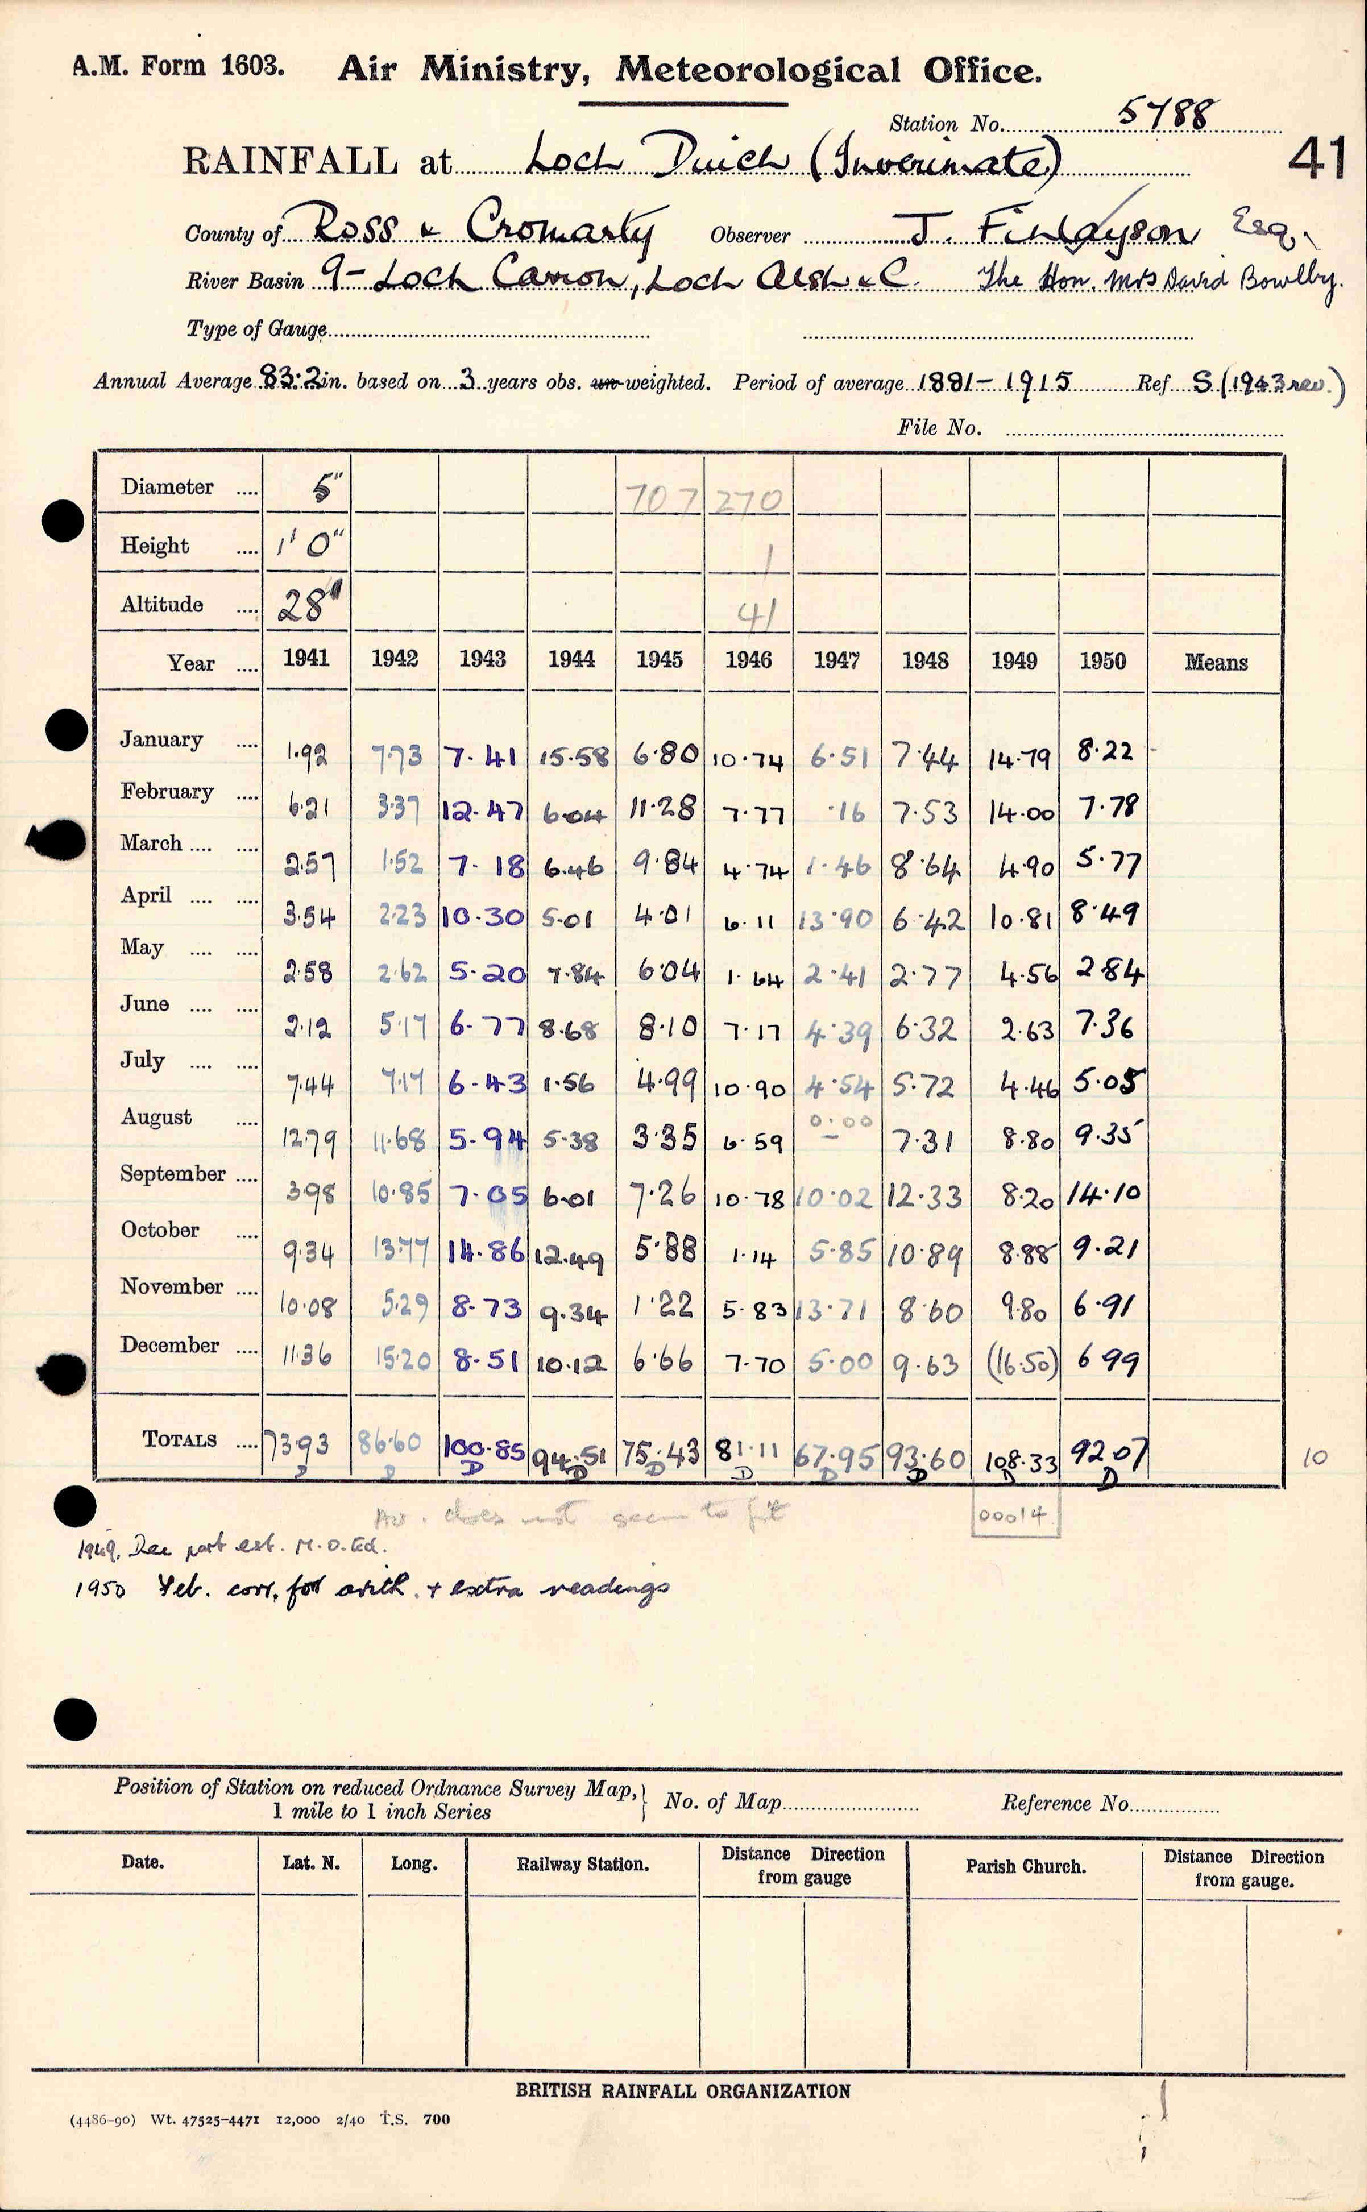 A.M. Form 1603. Air Ministry, Meteorological Office.
Station No. 5788
RAINFALL at Loch Duich (Inverinate) 41
County of Ross & Cromarty Observer J. Finlayson Esq.
River Basin 9- Loch Carron, Loch Alsh &C. The Hon. Mrs David Bowlby.
Type of Gauge
Annual Average 83.2 in. based on 3 years obs. un-weighted. Period of average 1881-1915 Ref S (1943 rev.)
File No.
Diameter .... 5" 707 270
Height .... 1' 0" 1
Altitude .... 28' 41
Year .... 1941 1942 1943 1944 1945 1946 1947 1948 1949 1950 Means
January .... 1.92 7.73 7.41 15.58 6.80 10.74 6.51 7.44 14.79 8.22
February .... 6.21 3.37 12.47 6.04 11.28 7.77 .16 7.53 14.00 7.78
March .... .... 2.57 1.52 7.18 6.46 9.84 4.74 1.46 8.64 4.90 5.77
April .... .... 3.54 2.23 10.30 5.01 4.01 6.11 13.90 6.42 10.81 8.49
May .... .... 2.58 2.62 5.20 7.84 6.04 1.64 2.41 2.77 4.56 2.84
June .... .... 2.12 5.17 6.77 8.68 8.10 7.17 4.39 6.32 2.63 7.36
July .... .... 7.44 7.17 6.43 1.56 4.99 10.90 4.54 5.72 4.46 5.05
August .... 12.79 11.68 5.94 5.38 3.35 6.59 0.00 – 7.31 8.80 9.35
September .... 3.98 10.85 7.05 6.01 7.26 10.78 10.02 12.33 8.20 14.10
October .... 9.34 13.77 14.86 12.49 5.88 1.14 5.85 10.89 8.88 9.21
November .... 10.08 5.29 8.73 9.34 1.22 5.83 13.71 8.60 9.80 6.91
December .... 11.36 15.20 8.51 10.12 6.66 7.70 5.00 9.63 (16.50) 6.99
TOTALS .... 73.93 86.60 100.85 94.51 75.43 81.11 67.95 93.60 108.33 92.07 10
D D D D D D D D D D
Av. does not seem to fit 00014
1949. Dec part est. M.O.Ed.
1950 Feb. corr. for arith. + extra readings
Position of Station on reduced Ordnance Survey Map, } No. of Map Reference No.
1 mile to 1 inch Series
Date. Lat. N. Long. Railway Station. Distance from gauge Direction Parish Church. Distance Direction from gauge.
BRITISH RAINFALL ORGANIZATION
(4486-90) Wt. 47525-4471 12,000 2/40 T.S. 700